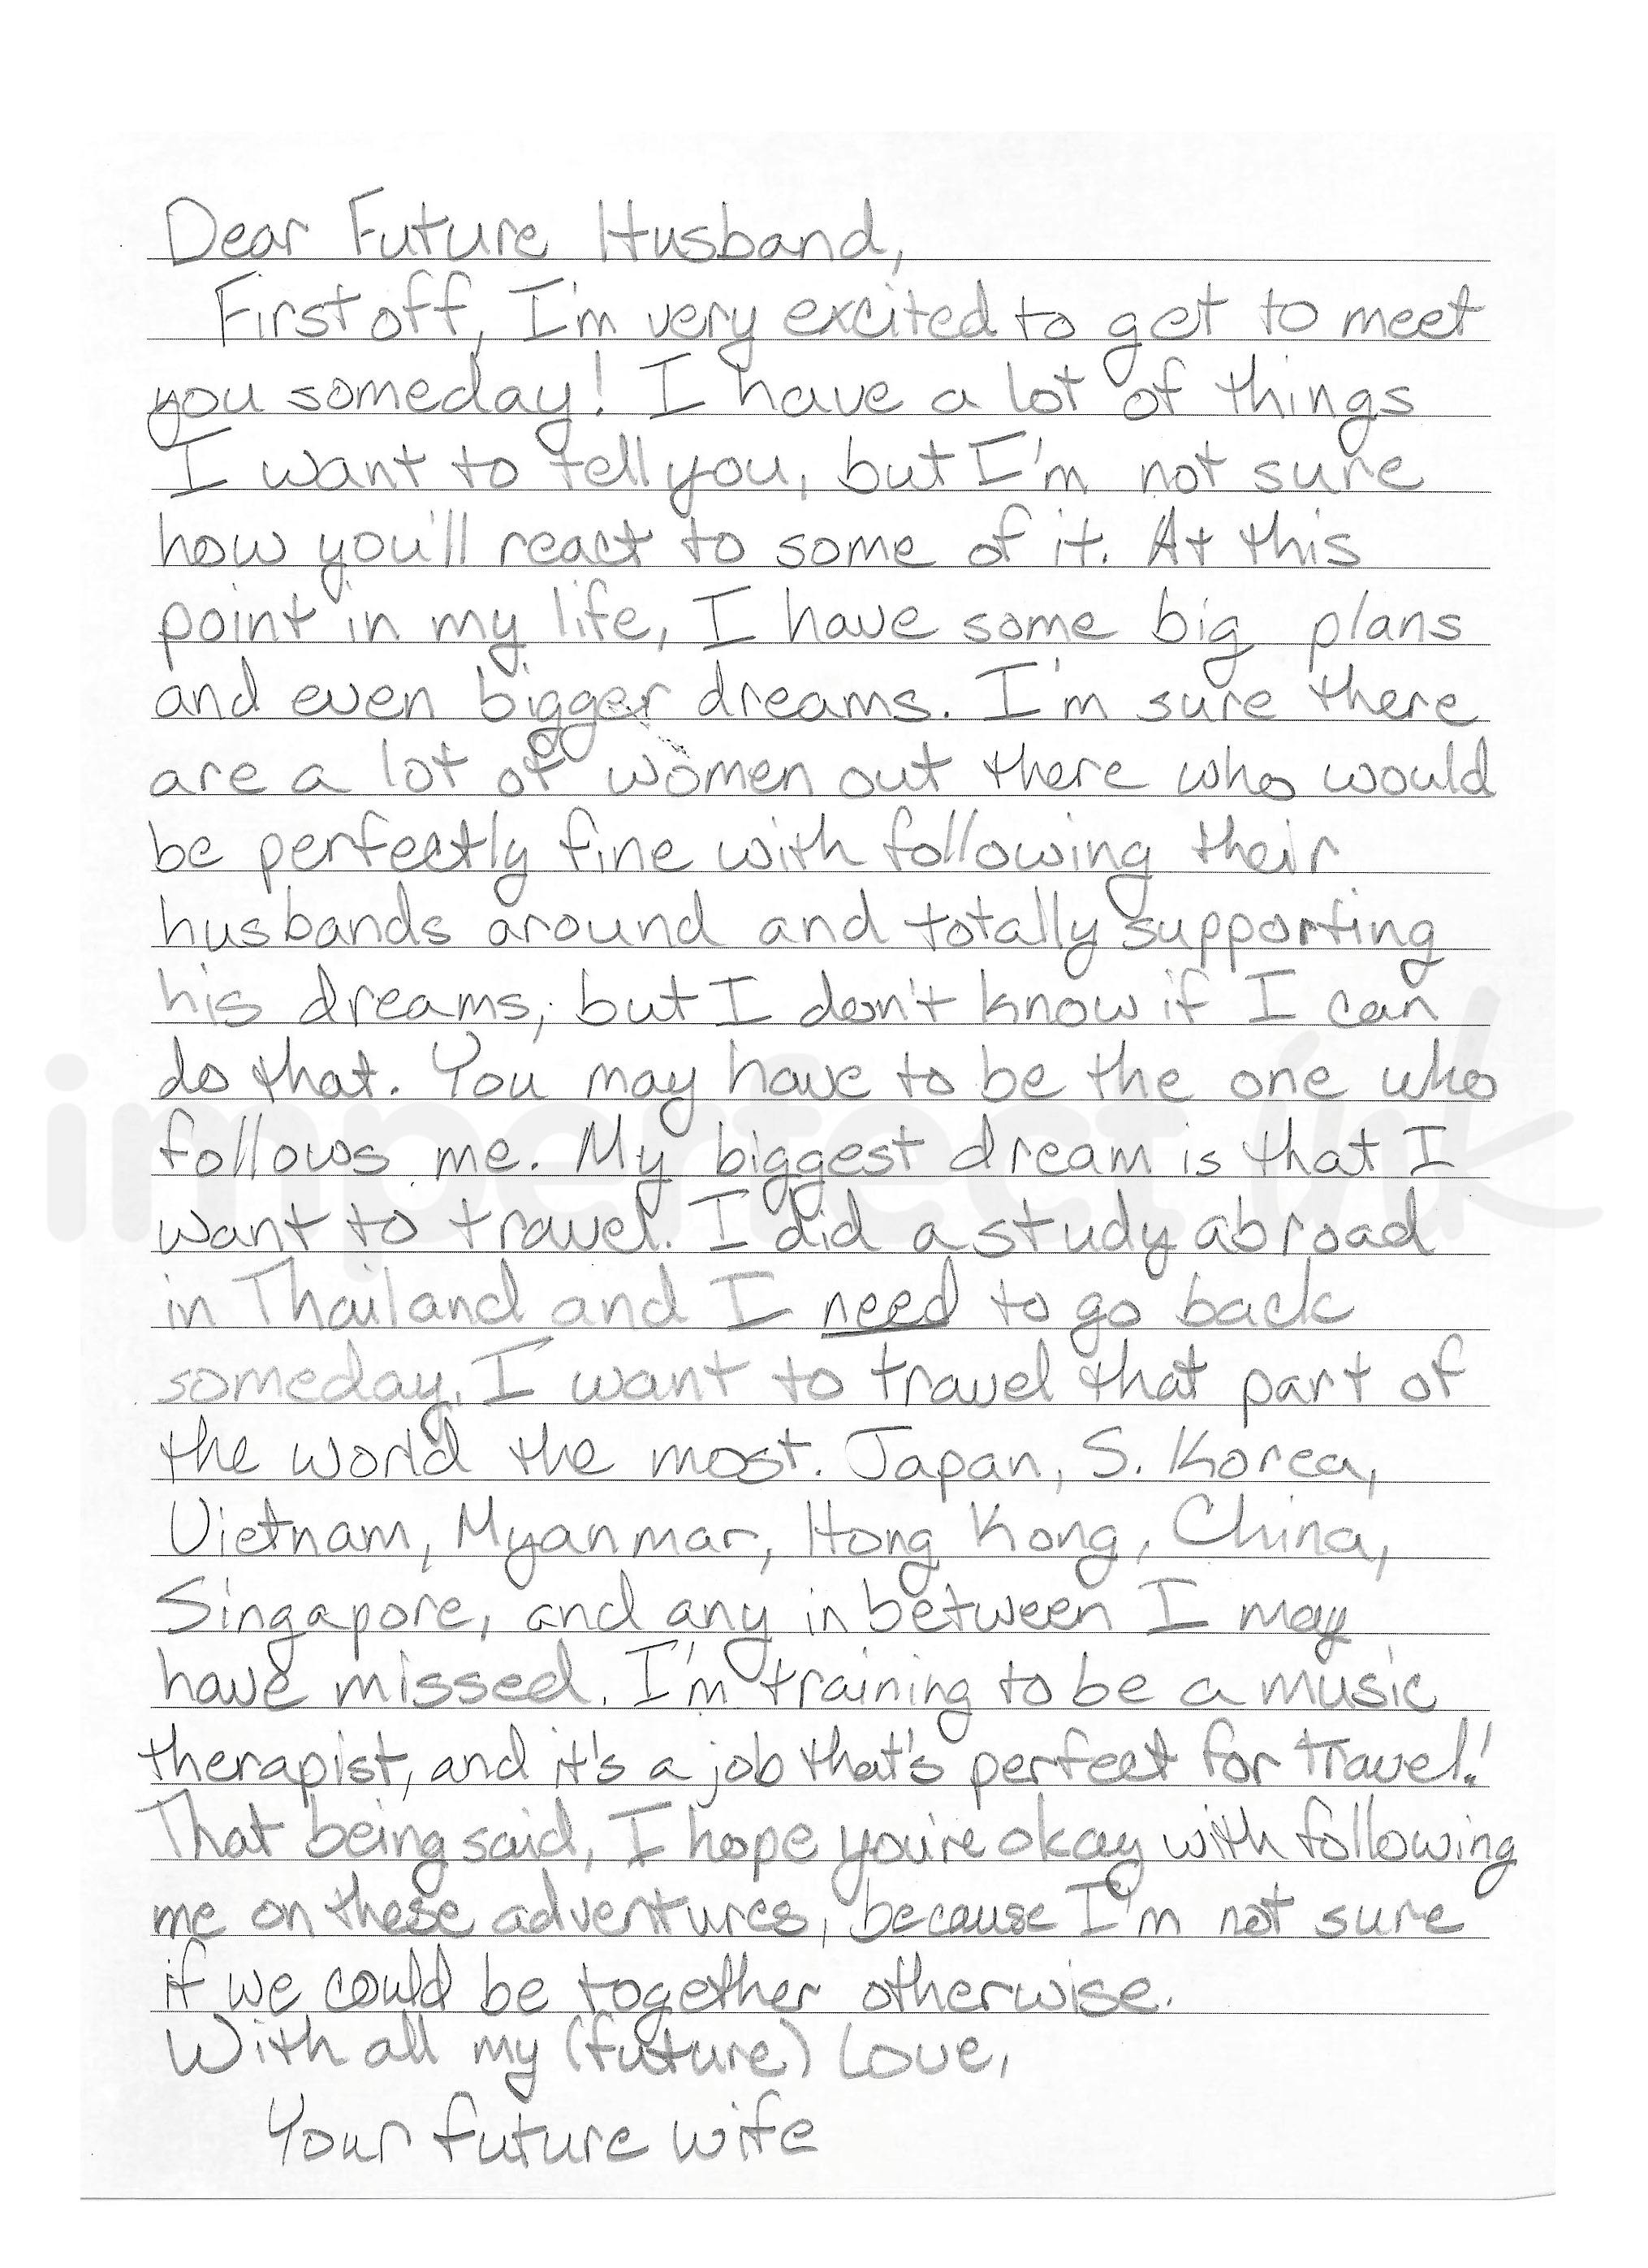 Dear Future Husband,
First off, I'm very excited to get to meet
you someday! I have a lot of things
I want to tell you, but I'm not sure
how you'll react to some of it. At this
point in my life, I have some big plans
and even bigger dreams. I'm sure there
are a lot of women out there who would
be perfectly fine with following their
husbands around and totally supporting
his dreams, but I don't know if I can
do that. You may have to be the one who
follows me. My biggest dream is that I
want to travel. I did a study abroad
in Thailand and I need to go back
someday. I want to travel that part of
the world the most. Japan, S. Korea,
Vietnam, Myanmar, Hong Kong, China,
Singapore, and any in between I may
have missed. I'm training to be a music
therapist, and it's a job that's perfect for travel!
That being said, I hope you're okay with following
me on these adventures, because I'm not sure
if we could be together otherwise.
With all my (future) Love,
Your future wife